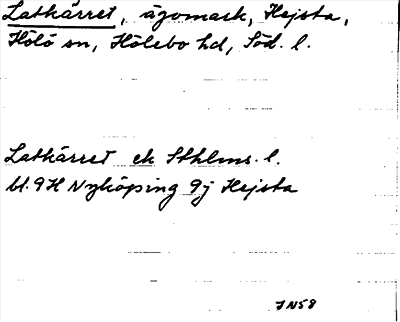 Latkärret, ägomark, Hejsta,
Hölö sn, Hölebo hd, Söd. l.
Latkärret ek Sthlms. l.
bl. 9H Nyköping 9j Hejsta
JN58